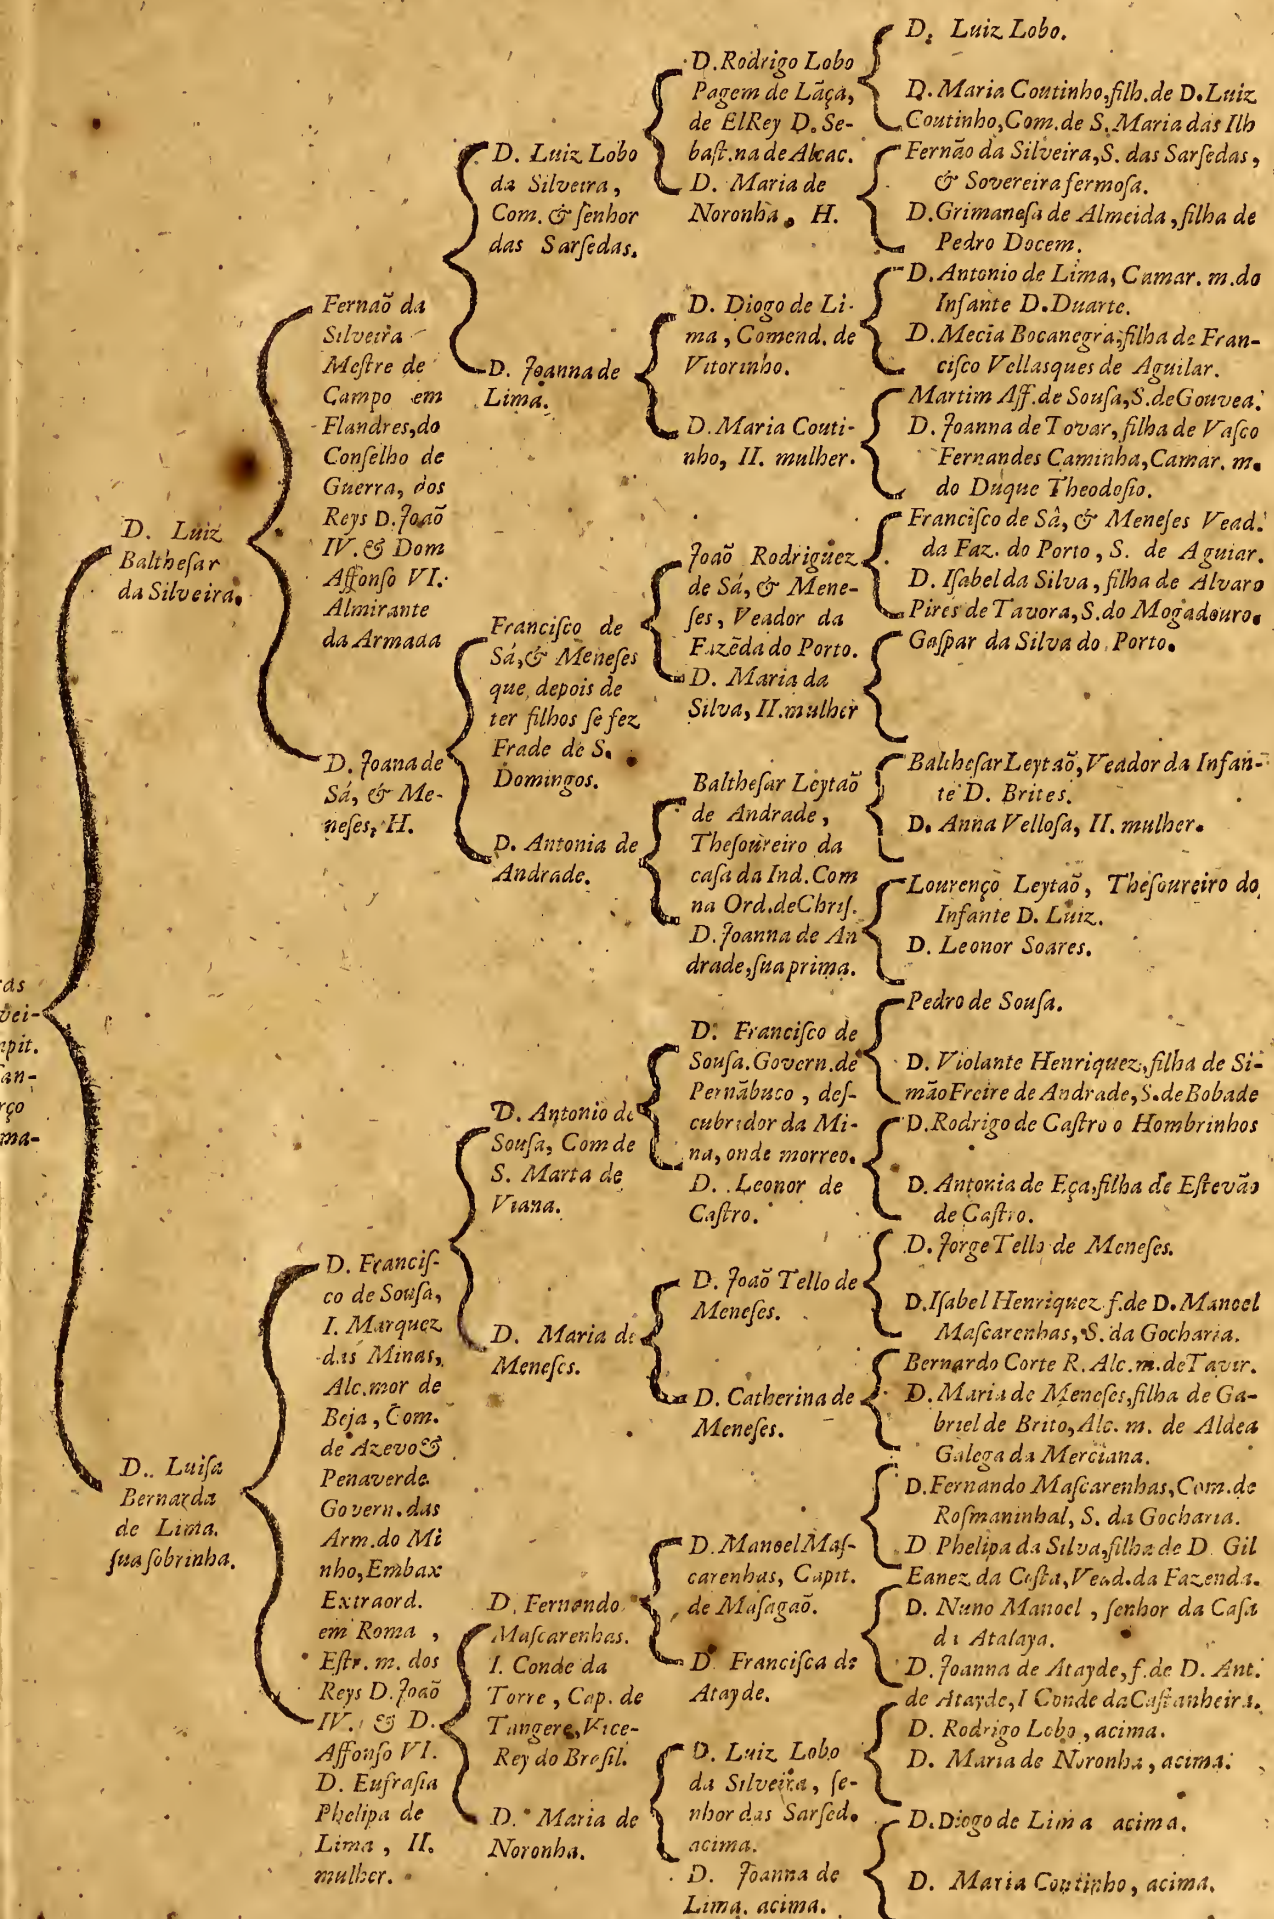 D. Luiz
Balthesar
da Silveira.
D. Luiſa
Bernarda
de Lima.
ſua ſobrinha.
Fernaõ da
Silveira
Meſtre de
Campo em
Flandres, do
Conſelho de
Guerra, dos
Reys D. Joaõ
IV. & Dom
Affonſo VI.
Almirante
da Armada
D. Joana de
Sá, & Me-
neſes, H.
D. Franciſ-
co de Souſa,
I. Marquez
das Minas,
Alc. mor de
Beja, Com.
de Azevo &
Penaverde.
Govern. das
Arm. do Mi
nho, Embax
Extraord.
em Roma,
Eſtr. m. dos
Reys D. Joaõ
IV. & D.
Affonſo VI.
D. Eufraſia
Phelipa de
Lima, II.
mulher.
D. Luiz Lobo
da Silveira,
Com. & ſenhor
das Sarſedas.
D. Joanna de
Lima.
Franciſco de
Sá, & Meneſes
que, depois de
ter filhos ſe fez
Frade de S.
Domingos.
D. Antonia de
Andrade.
D. Antonio de
Souſa, Com de
S. Marta de
Viana.
D. Maria de
Meneſes.
D. Fernando
Maſcarenhas.
I. Conde da
Torre, Cap. de
Tangere, Vice-
Rey do Braſil.
D. Maria de
Noronha.
D. Rodrigo Lobo
Pagem de Lãça,
de ElRey D. Se-
baſt. na de Alcac.
D. Maria de
Noronha, H.
D. Diogo de Li-
ma, Comend. de
Vitorinho.
D. Maria Couti-
nho, II. mulher.
Joaõ Rodriguez
de Sá, & Mene-
ſes, Veador da
Fazẽda do Porto.
D. Maria da
Silva, II. mulher
Baltheſar Leytaõ
de Andrade,
Theſoureiro da
caſa da Ind. Com
na Ord. de Chriſ.
D. Joanna de An
drade, ſua prima.
D. Franciſco de
Souſa. Govern. de
Pernãbuco, deſ-
cubridor da Mi-
na, onde morreo.
D. Leonor de
Caſtro.
D. Joaõ Tello de
Meneſes.
D. Catherina de
Meneſes.
D. Manoel Maſ-
carenhas, Capit.
de Maſagaõ.
D. Franciſca de
Atayde.
D. Luiz Lobo
da Silveira, ſe-
nhor das Sarſed.
acima.
D. Joanna de
Lima. acima.
D. Luiz Lobo.
D. Maria Coutinho, filh. de D. Luiz
Coutinho, Com. de S. Maria das Ilh
Fernão da Silveira, S. das Sarſedas,
& Sovereira fermoſa.
D. Grimaneſa de Almeida, filha de
Pedro Docem.
D. Antonio de Lima, Camar. m. do
Infante D. Duarte.
D. Mecia Bocanegra, filha de Fran-
ciſco Vellasques de Aguilar.
Martim Aff. de Souſa, S. de Gouvea.
D. Joanna de Tovar, filha de Vaſco
Fernandes Caminha, Camar. m.
do Duque Theodoſio.
Franciſco de Sâ, & Meneſes Vead.
da Faz. do Porto, S. de Aguiar.
D. Iſabel da Silva, filha de Alvaro
Pires de Tavora, S. do Mogadouro.
Gaſpar da Silva do Porto.
Baltheſar Leytaõ, Veador da Infan-
te D. Brites.
D. Anna Velloſa, II. mulher.
Lourenço Leytaõ, Theſoureiro do
Infante D. Luiz.
D. Leonor Soares.
Pedro de Souſa.
D. Violante Henriquez, filha de Si-
mão Freire de Andrade, S. de Bobade
D. Rodrigo de Caſtro o Hombrinhos
D. Antonia de Eça, filha de Eſtevão
de Caſtro.
D. Jorge Tello de Meneſes.
D. Iſabel Henriquez f. de D. Manoel
Maſcarenhas, S. da Gocharia.
Bernardo Corte R. Alc. m. de Tavir.
D. Maria de Meneſes, filha de Ga-
briel de Brito, Alc. m. de Aldea
Galega da Merciana.
D. Fernando Maſcarenhas, Com. de
Roſmaninhal, S. da Gocharia.
D Phelipa da Silva, filha de D. Gil
Eanez da Coſta, Vead. da Fazenda.
D. Nuno Manoel, ſenhor da Caſa
da Atalaya.
D. Joanna de Atayde, f. de D. Ant.
de Atayde, I Conde da Caſtanheira.
D. Rodrigo Lobo, acima.
D. Maria de Noronha, acima.
D. Diogo de Lima acima.
D. Maria Coutinho, acima.